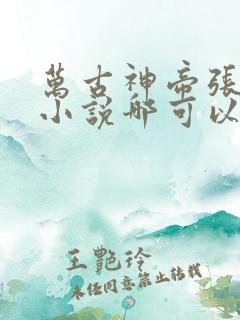 萬古神帝張
小說哪可以
王艷玲
未经同意禁止转载